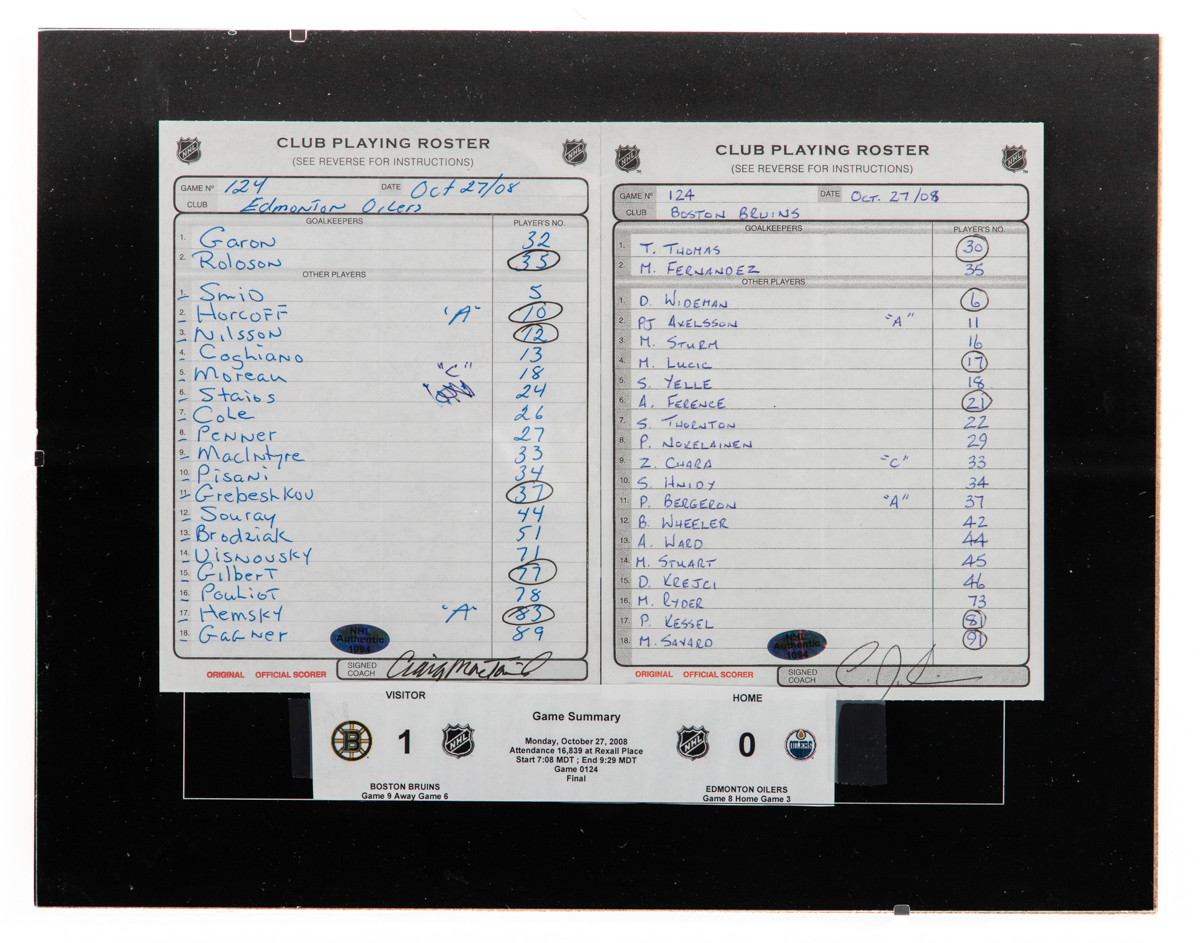 CLUB PLAYING ROSTER
(SEE REVERSE FOR INSTRUCTIONS)
GAME Nº 124 DATE Oct 27/08
CLUB Edmonton Oilers
GOALKEEPERS PLAYER'S NO.
1. Garon 32
2. Roloson 35
OTHER PLAYERS
1. Smid 5
2. Horcoff "A" 10
3. Nilsson 12
4. Cogliano 13
5. Moreau "C" 18
6. Staios 24
7. Cole 26
8. Penner 27
9. MacIntyre 33
10. Pisani 34
11. Grebeshkov 37
12. Souray 44
13. Brodziak 51
14. Visnovsky 71
15. Gilbert 77
16. Pouliot 78
17. Hemsky "A" 83
18. Gagner 89
NHL
Authentic
1094
ORIGINAL OFFICIAL SCORER SIGNED COACH Craig MacTavish
CLUB PLAYING ROSTER
(SEE REVERSE FOR INSTRUCTIONS)
GAME Nº 124 DATE OCT. 27/08
CLUB BOSTON BRUINS
GOALKEEPERS PLAYER'S NO.
1. T. THOMAS 30
2. M. FERNANDEZ 35
OTHER PLAYERS
1. D. WIDEMAN 6
2. PJ AXELSSON "A" 11
3. M. STURM 16
4. M. LUCIC 17
5. S. YELLE 18
6. A. FERENCE 21
7. S. THORNTON 22
8. P. NOKELAINEN 29
9. Z. CHARA "C" 33
10. S. HNIDY 34
11. P. BERGERON "A" 37
12. B. WHEELER 42
13. A. WARD 44
14. M. STUART 45
15. D. KREJCI 46
16. M. RYDER 73
17. P. KESSEL 81
18. M. SAVARD 91
NHL
Authentic
1094
ORIGINAL OFFICIAL SCORER SIGNED COACH
VISITOR HOME
Game Summary
B 1 NHL NHL 0 OILERS
Monday, October 27, 2008
Attendance 16,839 at Rexall Place
Start 7:08 MDT ; End 9:29 MDT
Game 0124
Final
BOSTON BRUINS
Game 9 Away Game 6
EDMONTON OILERS
Game 8 Home Game 3